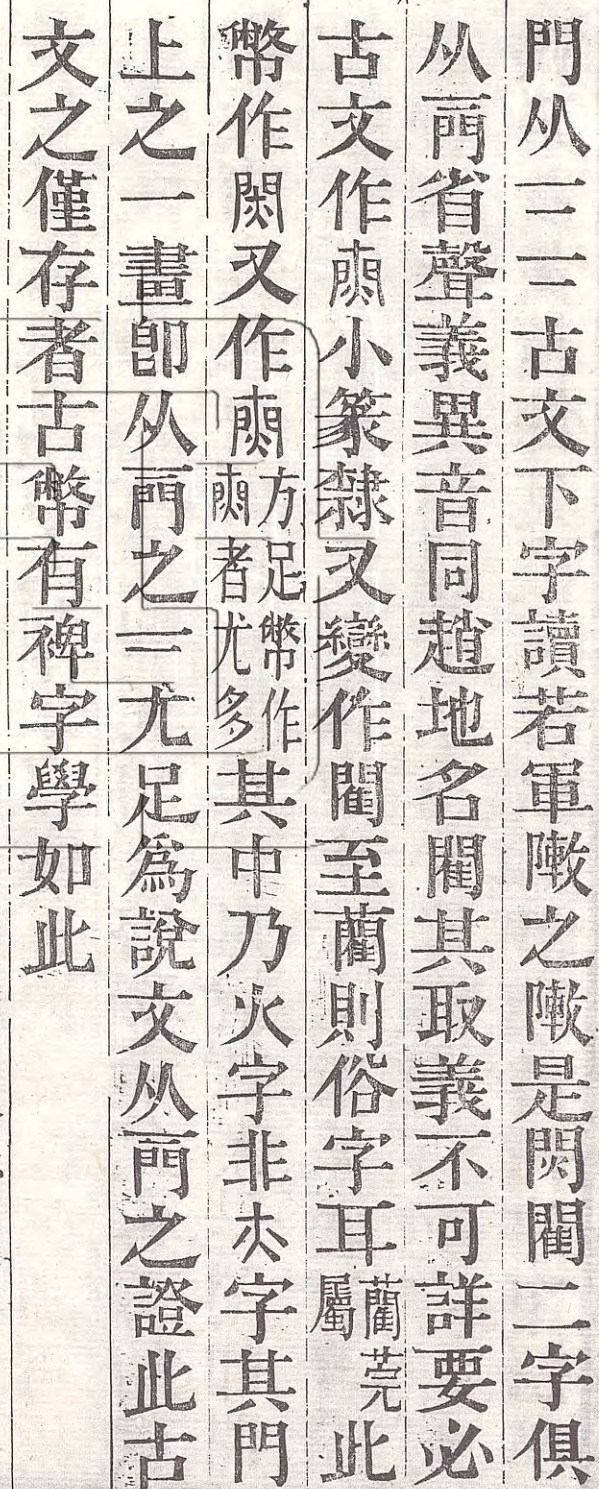 門从二二古文下字讀若軍敶之敶是焛閵二字俱
从𠁁省聲義異音同趙地名閵其取義不可詳要必
古文作小篆隸又變作閵至藺則俗字耳藺莞屬此
幣作焛又作方足幣作者尤多其中乃火字非字其門
上之一畫卽从𠁁之二尤足爲說文从𠁁之證此古
文之僅存者古幣有裨字學如此